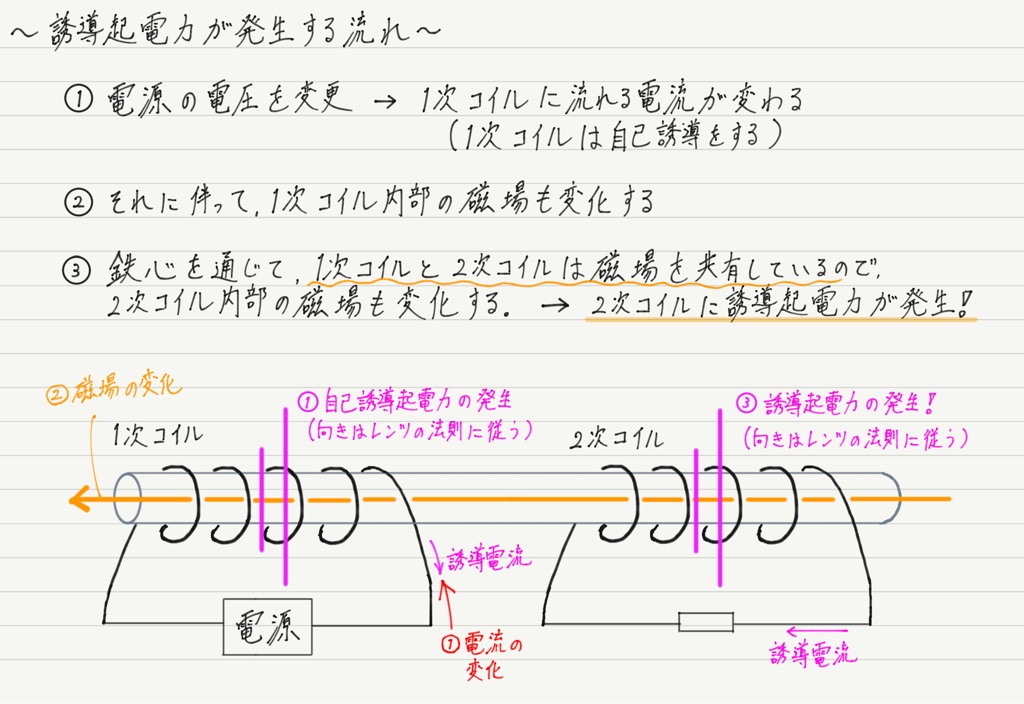 〜誘導起電力が発生する流れ〜
① 電源の電圧を変更 → 1次コイルに流れる電流が変わる
(1次コイルは自己誘導をする)
② それに伴って、1次コイル内部の磁場も変化する
③ 鉄心を通じて、1次コイルと2次コイルは磁場を共有しているので、
2次コイル内部の磁場も変化する. → 2次コイルに誘導起電力が発生!
②磁場の変化
①自己誘導起電力の発生
(向きはレンツの法則に従う)
1次コイル
③誘導起電力の発生!
(向きはレンツの法則に従う)
2次コイル
誘導電流
電源
①電流の
変化
誘導電流